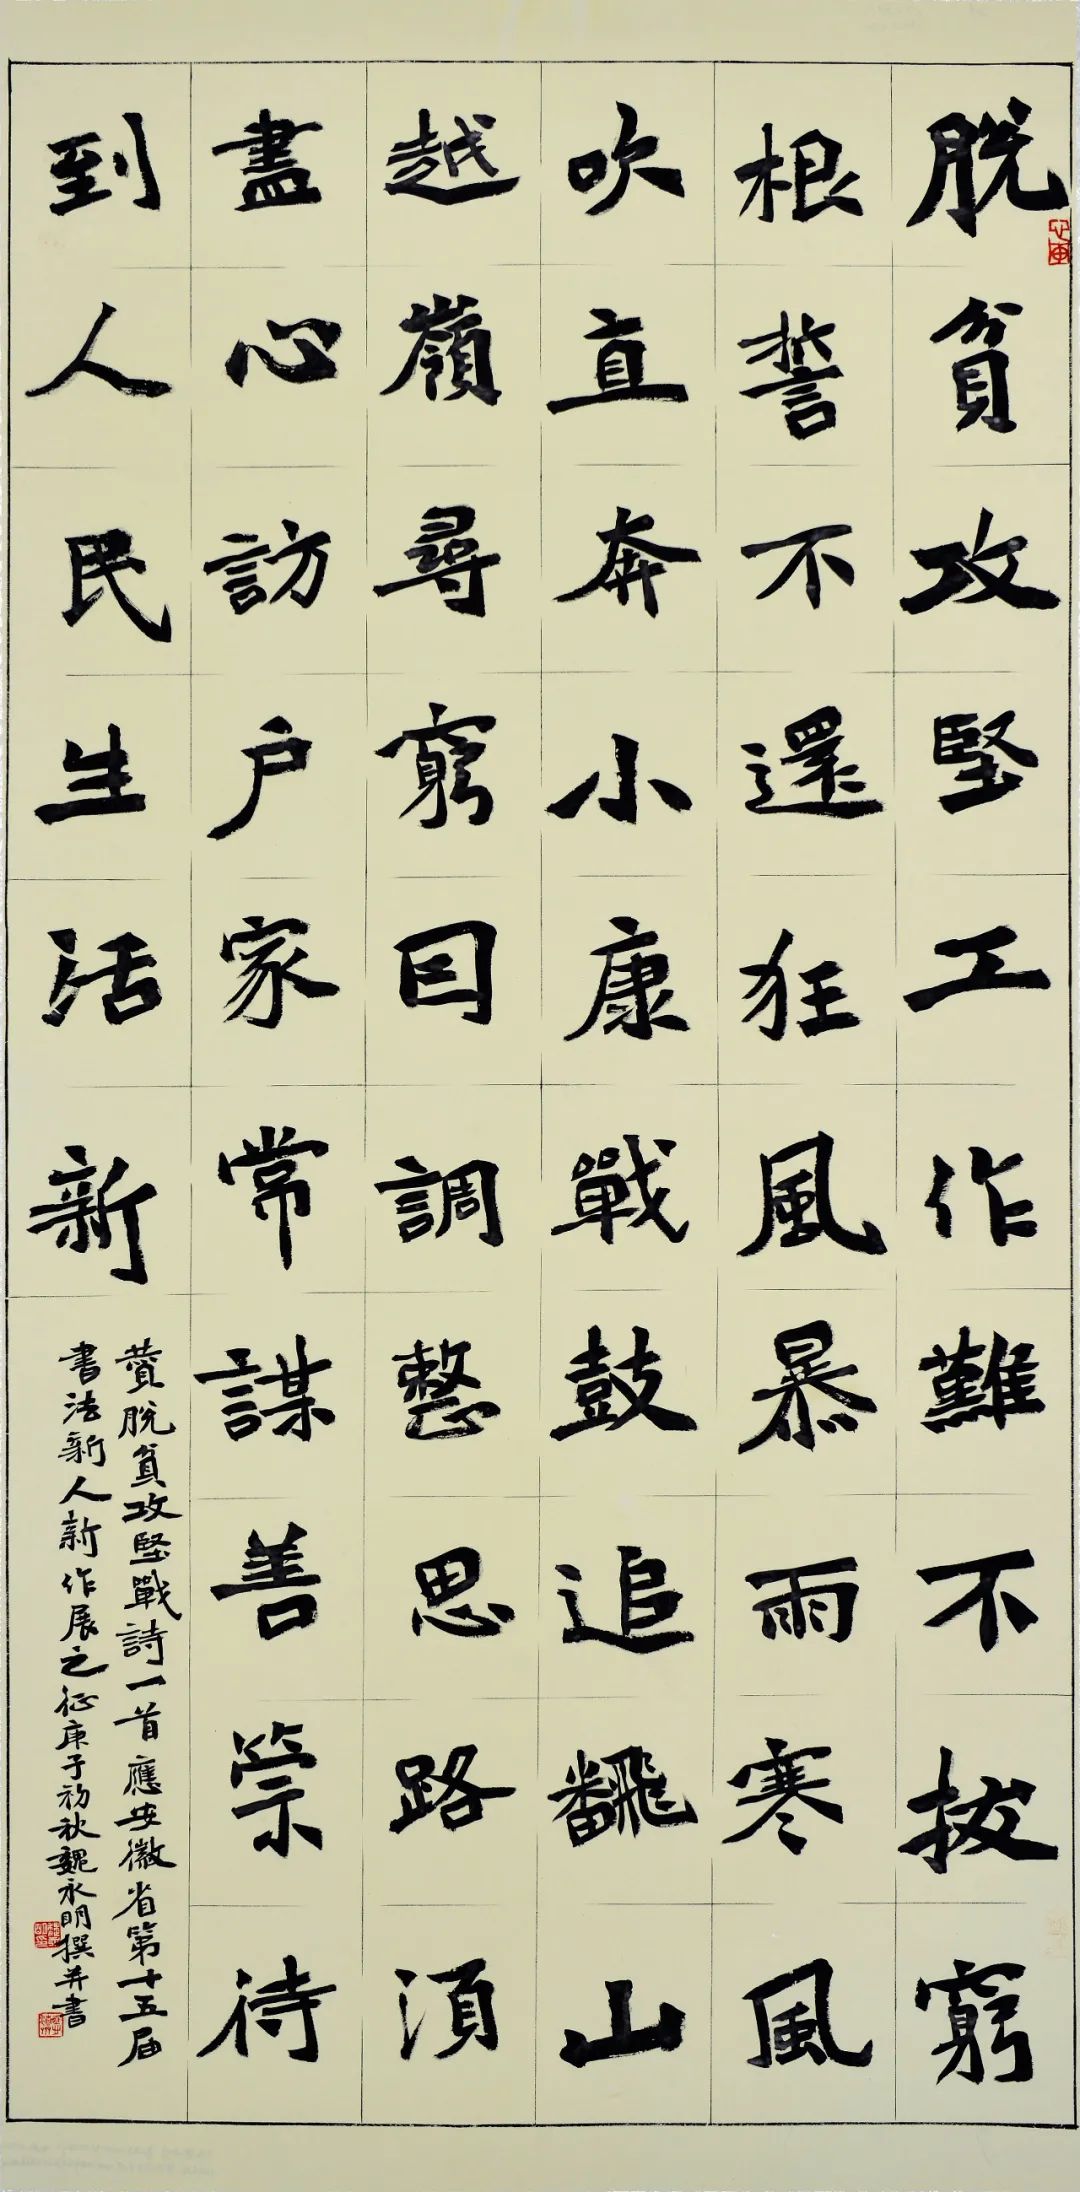 脫貧攻堅工作難不拔窮
根誓不還狂風暴雨寒風
吹直奔小康戰鼓追飜山
越嶺尋窮囙調整思路須
盡心訪户家常謀善策待
到人民生活新
贊脫貧攻堅戰詩一首應安徽省第十五届
書法新人新作展之征庚子初秋魏永明撰并書